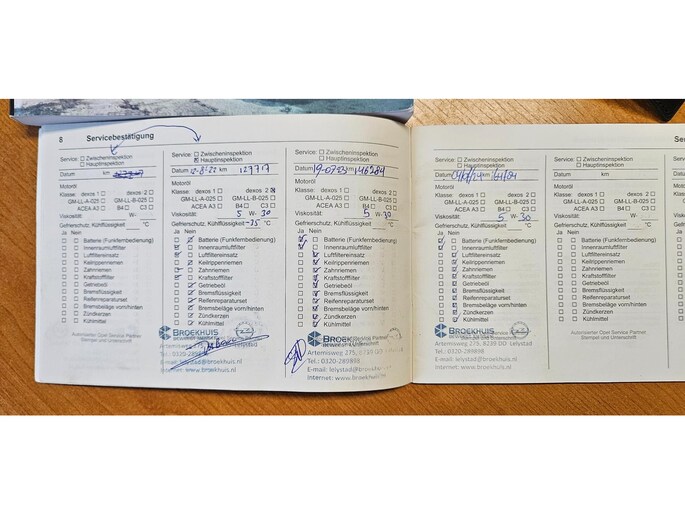 8 Servicebestätigung
Service: Zwischeninspektion
Hauptinspektion
Datum km
Motoröl
Klasse: dexos 1 dexos 2
GM-LL-A-025 GM-LL-B-025
ACEA A3 B4 C3
Viskosität: W-
Gefrierschutz, Kühlflüssigkeit °C
Ja Nein
Batterie (Funkfernbedienung)
Innenraumluftfilter
Luftfiltereinsatz
Keilrippenriemen
Zahnriemen
Kraftstofffilter
Getriebeöl
Bremsflüssigkeit
Reifenreparaturset
Bremsbeläge vorn/hinten
Zündkerzen
Kühlmittel
Autorisierter Opel Service Partner
Stempel und Unterschrift
Service: Zwischeninspektion
Hauptinspektion
Datum km 127717
Motoröl
Klasse: dexos 1 dexos 2
GM-LL-A-025 GM-LL-B-025
ACEA A3 B4 C3
Viskosität: 5 W- 30
Gefrierschutz, Kühlflüssigkeit -35 °C
Ja Nein
Batterie (Funkfernbedienung)
Innenraumluftfilter
Luftfiltereinsatz
Keilrippenriemen
Zahnriemen
Kraftstofffilter
Getriebeöl
Bremsflüssigkeit
Reifenreparaturset
Bremsbeläge vorn/hinten
Zündkerzen
Kühlmittel
BROEKHUIS
Tel.: 0320-289898
E-mail: lelystad@broekhuis.nl
Internet: www.broekhuis.nl
Service: Zwischeninspektion
Hauptinspektion
Datum km
Motoröl
Klasse: dexos 1 dexos 2
GM-LL-A-025 GM-LL-B-025
ACEA A3 B4 C3
Viskosität: 5 W- 30
Gefrierschutz, Kühlflüssigkeit °C
Ja Nein
Batterie (Funkfernbedienung)
Innenraumluftfilter
Luftfiltereinsatz
Keilrippenriemen
Zahnriemen
Kraftstofffilter
Getriebeöl
Bremsflüssigkeit
Reifenreparaturset
Bremsbeläge vorn/hinten
Zündkerzen
Kühlmittel
Artemisweg 275, 8239 DD Lelystad
Tel.: 0320-289898
E-mail: lelystad@broekhuis.nl
Internet: www.broekhuis.nl
Service: Zwischeninspektion
Hauptinspektion
Datum km
Motoröl
Klasse: dexos 1 dexos 2
GM-LL-A-025 GM-LL-B-025
ACEA A3 B4 C3
Viskosität: 5 W- 30
Gefrierschutz, Kühlflüssigkeit °C
Ja Nein
Batterie (Funkfernbedienung)
Innenraumluftfilter
Luftfiltereinsatz
Keilrippenriemen
Zahnriemen
Kraftstofffilter
Getriebeöl
Bremsflüssigkeit
Reifenreparaturset
Bremsbeläge vorn/hinten
Zündkerzen
Kühlmittel
BROEKHUIS
Artemisweg 275, 8239 DD Lelystad
Tel.: 0320-289898
E-mail: lelystad@broekhuis.nl
Internet: www.broekhuis.nl
Service: Zwischeninspektion
Hauptinspektion
Datum km
Motoröl
Klasse: dexos 1 dexos 2
GM-LL-A-025 GM-LL-B-025
ACEA A3 B4 C3
Viskosität: W-
Gefrierschutz, Kühlflüssigkeit °C
Ja Nein
Batterie (Funkfernbedienung)
Innenraumluftfilter
Luftfiltereinsatz
Keilrippenriemen
Zahnriemen
Kraftstofffilter
Getriebeöl
Bremsflüssigkeit
Reifenreparaturset
Bremsbeläge vorn/hinten
Zündkerzen
Kühlmittel
Autorisierter Opel Service Partner
Stempel und Unterschrift